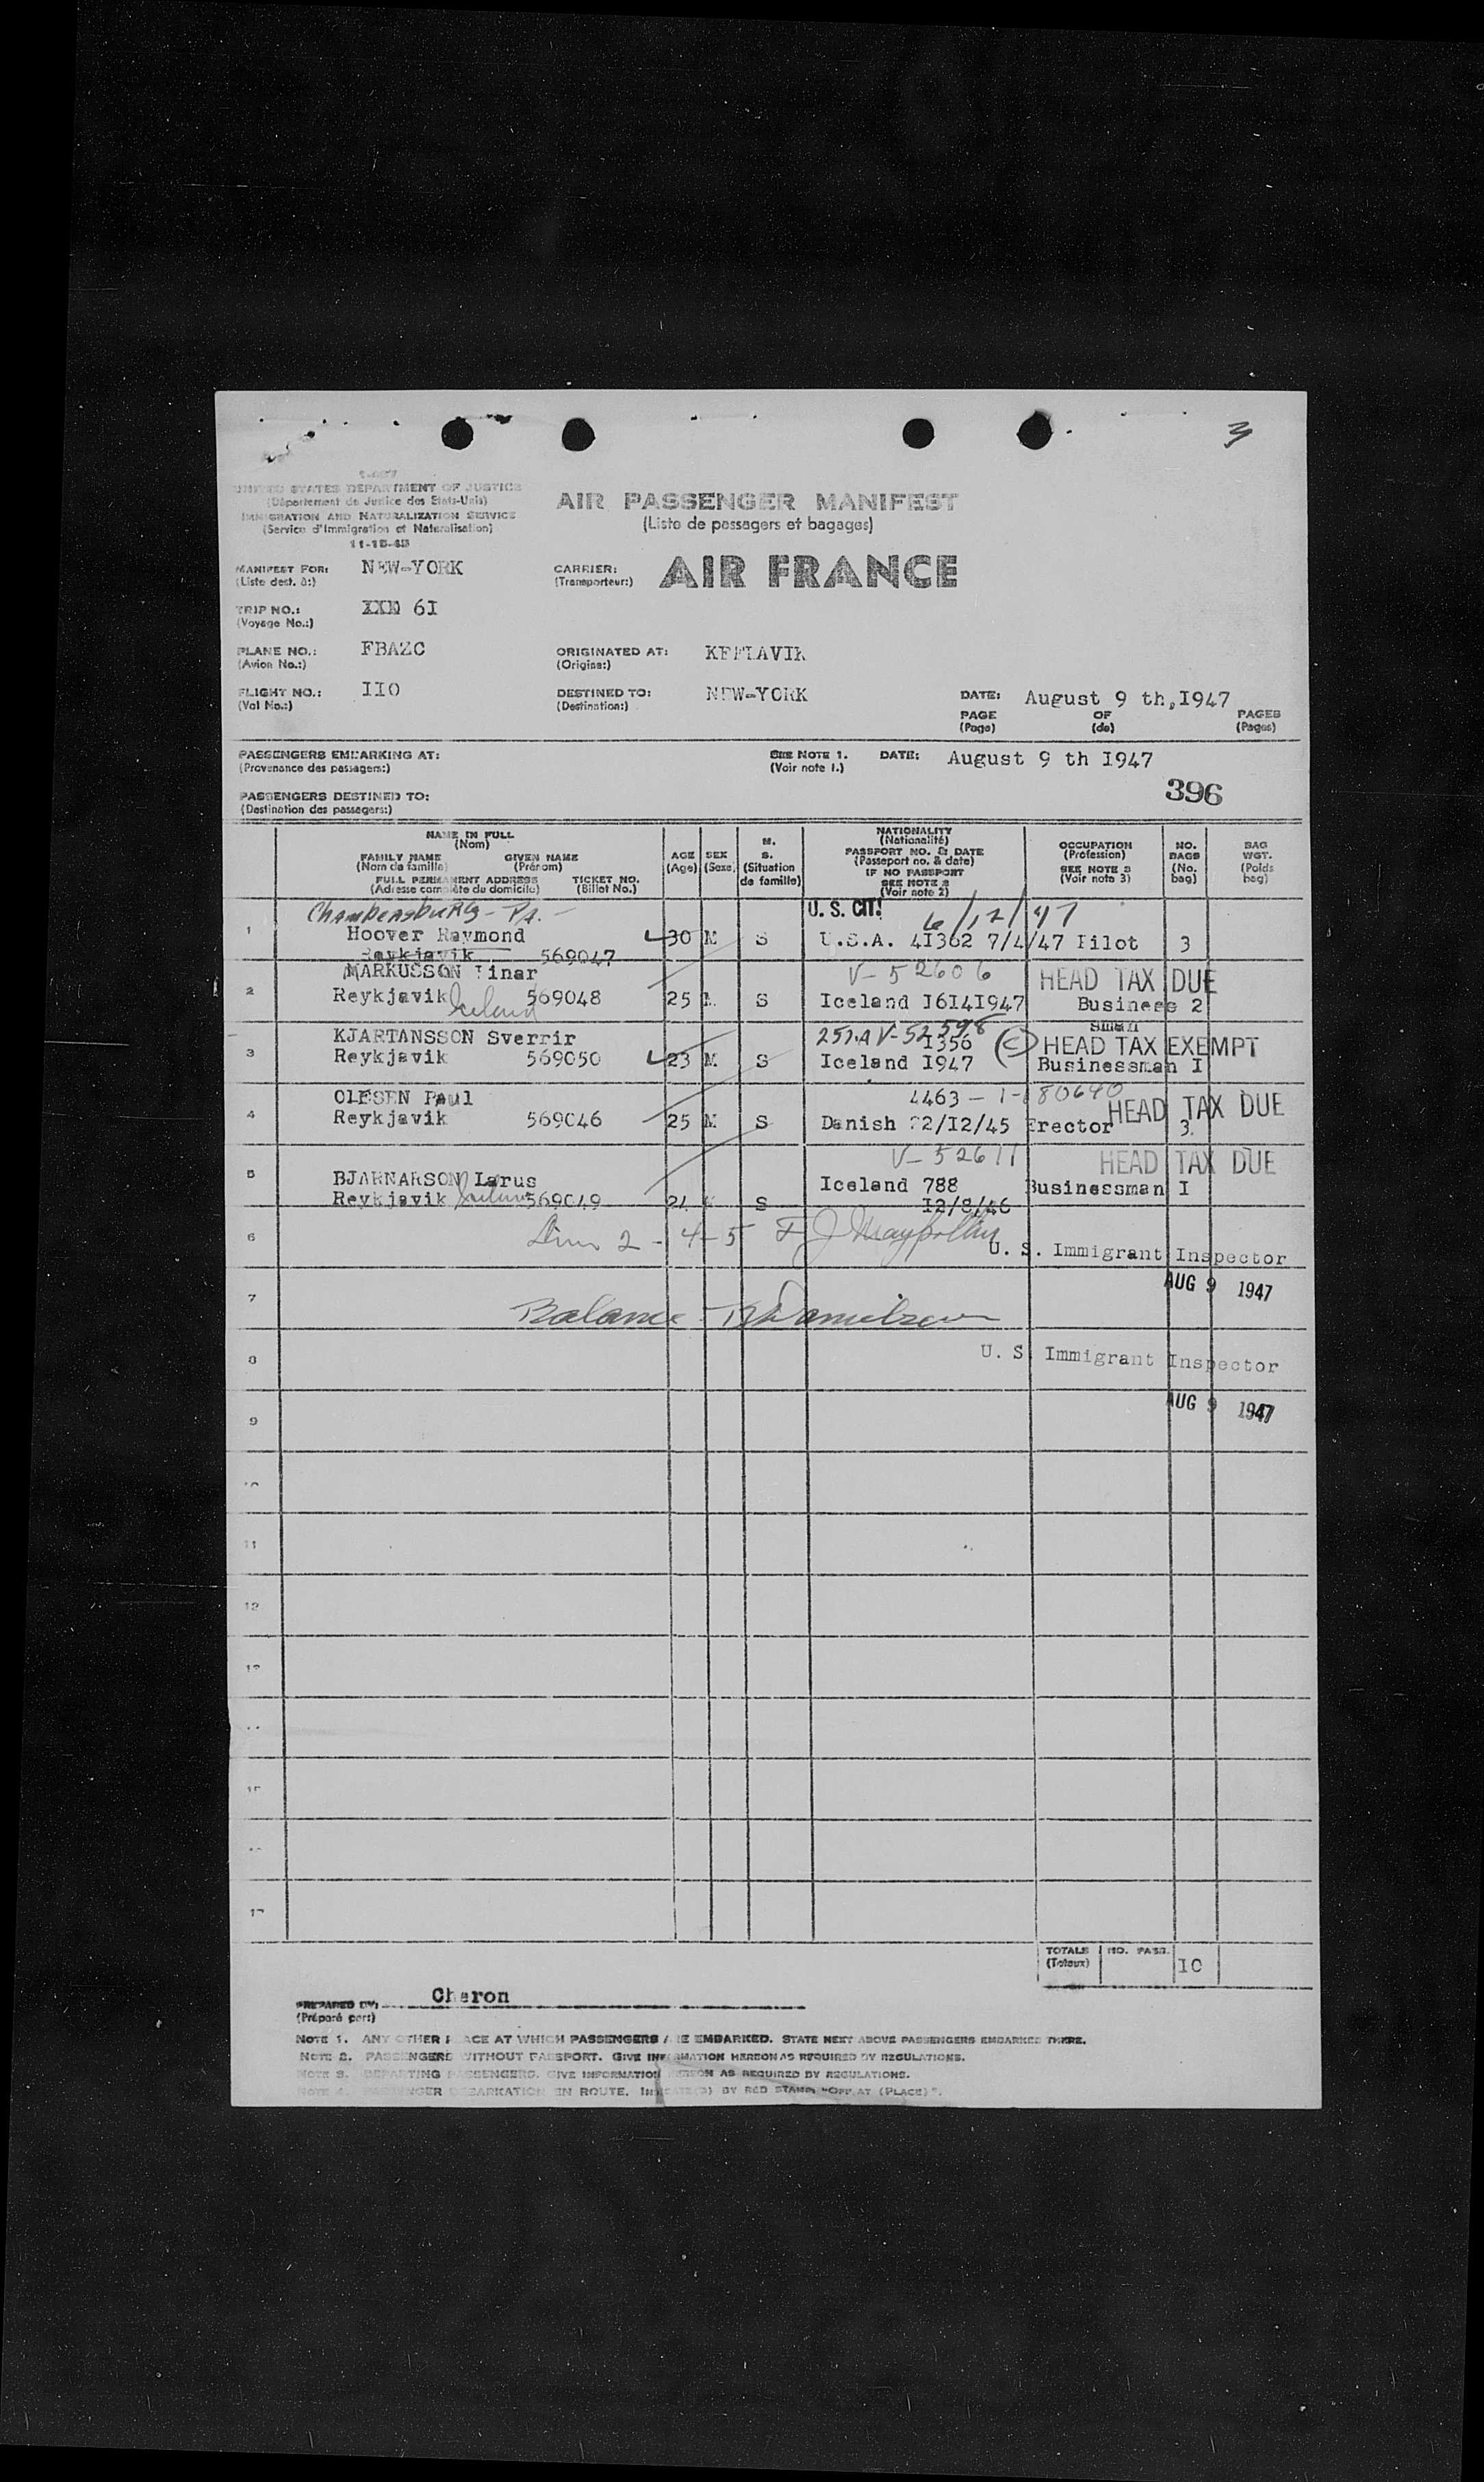 3
I-467
UNITED STATES DEPARTMENT OF JUSTICE
(Département de Justice des Etats-Unis)
IMMIGRATION AND NATURALIZATION SERVICE
(Service d'Immigration et Naturalisation)
11-15-45
AIR PASSENGER MANIFEST
(Liste de passagers et bagages)
MANIFEST FOR: NEW-YORK
(Liste dest. à:)
CARRIER: AIR FRANCE
(Transporteur:)
TRIP NO.: 6I
(Voyage No.:)
PLANE NO.: FBAZC
(Avion No.:)
ORIGINATED AT: KEFLAVIK
(Origine:)
FLIGHT NO.: IIO
(Vol No.:)
DESTINED TO: NEW-YORK
(Destination:)
DATE: August 9 th,I947
PAGE OF PAGES
(Page) (de) (Pages)
PASSENGERS EMBARKING AT:
(Provenance des passagers:)
SEE NOTE 1. DATE: August 9 th I947
(Voir note 1.)
396
PASSENGERS DESTINED TO:
(Destination des passagers:)
NAME IN FULL
(Nom)
FAMILY NAME GIVEN NAME
(Nom de famille) (Prénom)
FULL PERMANENT ADDRESS TICKET NO.
(Adresse complète du domicile) (Billet No.)
AGE
(Age)
SEX
(Sexe)
M.
S.
(Situation
de famille)
NATIONALITY
(Nationalité)
PASSPORT NO. & DATE
(Passeport no. & date)
IF NO PASSPORT
SEE NOTE 2
(Voir note 2)
OCCUPATION
(Profession)
SEE NOTE 3
(Voir note 3)
NO.
BAGS
(No.
bag)
BAG
WGT.
(Poids
bag)
CHAMBERSBURG - PA. - U. S. CIT. 6/12/47
1 Hoover Raymond 30 M S U.S.A. 4I362 7/4/47 Pilot 3
Reykjavik 569047
MARKUSSON Einar V-52606 HEAD TAX DUE
2 Reykjavik Iceland 569048 25 M S Iceland I6I4I947 Business 2
sman
KJARTANSSON Sverrir 257.A V-52598 I356 (C) HEAD TAX EXEMPT
3 Reykjavik 569050 23 M S Iceland I947 Businessman I
OLESEN Paul 4463 - 1-180640 HEAD TAX DUE
4 Reykjavik 569046 25 M S Danish 22/I2/45 Erector 3
V-52611 HEAD TAX DUE
5 BJARNARSON Larus Iceland 788 Businessman I
Reykjavik Iceland 569049 24 M S I2/8/46
6 2 - 4-5
U. S. Immigrant Inspector
AUG 9 1947
7 Balance
8 U. S. Immigrant Inspector
AUG 9 1947
9
10
11
12
13
15
17
TOTALS NO. PASS. IO
(Totaux)
PREPARED BY: Cheron
(Préparé par:)
NOTE 1. ANY OTHER PLACE AT WHICH PASSENGERS ARE EMBARKED. STATE NEXT ABOVE PASSENGERS EMBARKED THERE.
NOTE 2. PASSENGERS WITHOUT PASSPORT. GIVE INFORMATION HEREON AS REQUIRED BY REGULATIONS.
NOTE 3. DEPARTING PASSENGERS. GIVE INFORMATION HEREON AS REQUIRED BY REGULATIONS.
NOTE 4. PASSENGER DEBARKATION EN ROUTE. INDICATE(D) BY RED STAMP: "OFF AT (PLACE)".